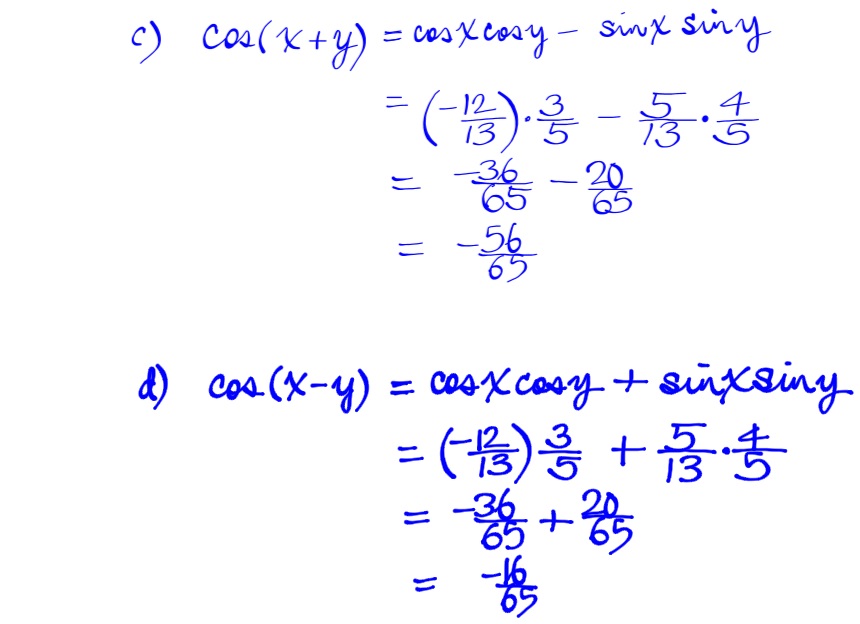 c) cos(x+y) = cosx cosy - sinx siny
= (-12/13)·3/5 - 5/13·4/5
= -36/65 - 20/65
= -56/65
d) cos(x-y) = cosx cosy + sinx siny
= (-12/13) 3/5 + 5/13·4/5
= -36/65 + 20/65
= -16/65